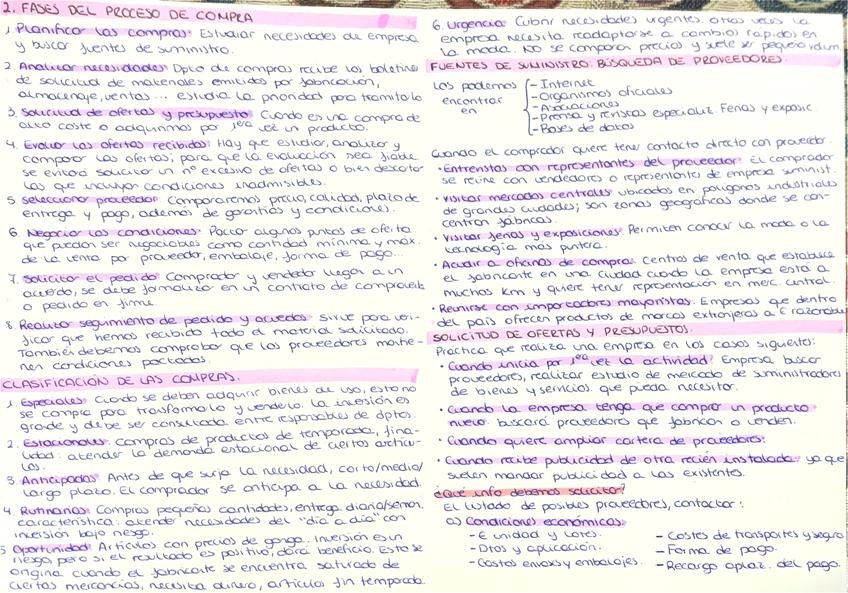 2. FASES DEL PROCESO DE COMPRA
1. Planificar las compras: Estudiar necesidades de empresa
y buscar fuentes de suministro.
2. Analizar necesidades: Dpto de compras recibe los boletines
de solicitud de materiales emitidos por fabricación,
almacenaje, ventas... estudia la prioridad para tramitarlo
3. Solicitud de ofertas y presupuesto: Cuando es una compra de
alto coste o adquirimos por 1era vez un producto.
4. Evaluar las ofertas recibidas: Hay que estudiar, analizar y
comparar las ofertas; para que la evaluación sea fiable
se evitará solicitar un nº excesivo de ofertas o bien descartar
las que incluyan condiciones inadmisibles.
5 Seleccionar proveedor: Compararemos precio, calidad, plazo de
entrega y pago, además de garantías y condiciones.
6 Negociar las condiciones: Pactar algunos puntos de oferta
que puedan ser negociables como cantidad mínima y máx.
de la venta por proveedor, embalaje, forma de pago...
7. Solicitar el pedido: Comprador y vendedor llegan a un
acuerdo, se debe formalizar en un contrato de compraventa
o pedido en firme.
8 Realizar seguimiento de pedido y acuerdos: Sirve para veri-
ficar que hemos recibido todo el material solicitado.
También debemos comprobar que los proveedores mantie-
nen condiciones pactadas.
CLASIFICACIÓN DE LAS COMPRAS.
1. Especiales: Cuando se deben adquirir bienes de uso, esto no
se compra para transformarlo y venderlo. La inversión es
grande y debe ser consultada entre responsables de dptos.
2. Estacionales: Compras de productos de temporada, fina-
lidad: atender la demanda estacional de ciertos artícu-
los.
3 Anticipadas: Antes de que surja la necesidad, corto/medio/
largo plazo. El comprador se anticipa a la necesidad.
4 Rutinarias: Compras pequeñas cantidades, entrega diaria/seman.
característica: atender necesidades del "día a día" con
inversión bajo riesgo.
5 Oportunidad: Artículos con precios de ganga. inversión es un
riesgo, pero si el resultado es positivo, dará beneficio. Esto se
origina cuando el fabricante se encuentra saturado de
ciertas mercancías, necesita dinero, artículos fin temporada.
6. Urgencia: Cubrir necesidades urgentes. otras veces la
empresa necesita readaptarse a cambios rápidos en
la moda. No se comparan precios y suele ser pequeño volum
FUENTES DE SUMINISTRO. BÚSQUEDA DE PROVEEDORES.
Los podemos encontrar en
- Internet
- Organismos oficiales
- Asociaciones
- Prensa y revistas especializ. Ferias y exposic
- Bases de datos
Cuando el comprador quiere tener contacto directo con proveedor.
• Entrevistas con representantes del proveedor: El comprador
se reúne con vendedores o representante de empresa suminist.
• Visitar mercados centrales ubicados en polígonos industriales
de grandes ciudades; son zonas geográficas donde se con-
centran fábricas.
• Visitar ferias y exposiciones: Permiten conocer la moda o la
tecnología más puntera.
• Acudir a oficinas de compra: Centros de venta que establece
el fabricante en una ciudad cuando la empresa está a
muchos km y quiere tener representación en merc. central.
• Reunirse con importadores mayoristas: Empresas que dentro
del país ofrecen productos de marcas extranjeras a € razonable
SOLICITUD DE OFERTAS Y PRESUPUESTOS.
Práctica que realiza una empresa en los casos siguiente:
• Cuando inicia por 1era vez la actividad: Empresa buscar
proveedores, realizar estudio de mercado de suministradores
de bienes y servicios que pueda necesitar.
• Cuando la empresa tenga que comprar un producto
nuevo: buscará proveedores que fabrican o venden.
• Cuando quiere ampliar cartera de proveedores:
• Cuando recibe publicidad de otra recién instalada: ya que
suelen mandar publicidad a los existentes.
¿Qué info debemos solicitar?
El listado de posibles proveedores, contactar:
a) Condiciones económicas:
- € unidad y lotes.
- Dtos y aplicación.
- Costos envases y embalajes.
- Costes de transportes y seguro
- Forma de pago.
- Recargo aplaz. del pago.